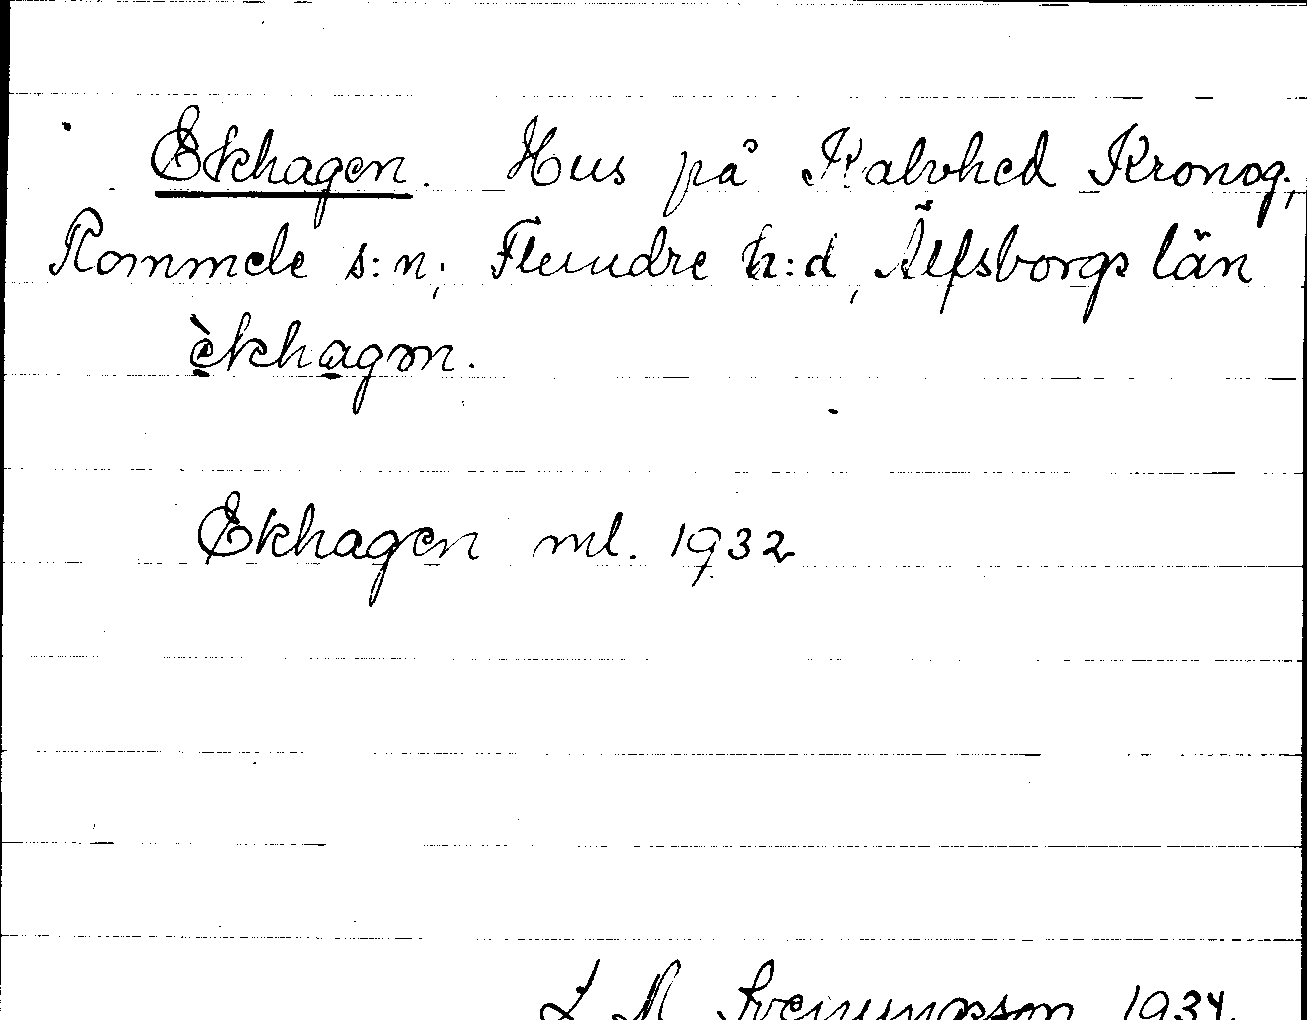 Ekhagen. Hus på Kalvhed Kronog.,
Rommele s:n; Flundre h:d, Älfsborgs län
èkhagən.
Ekhagen ml. 1932
1934.